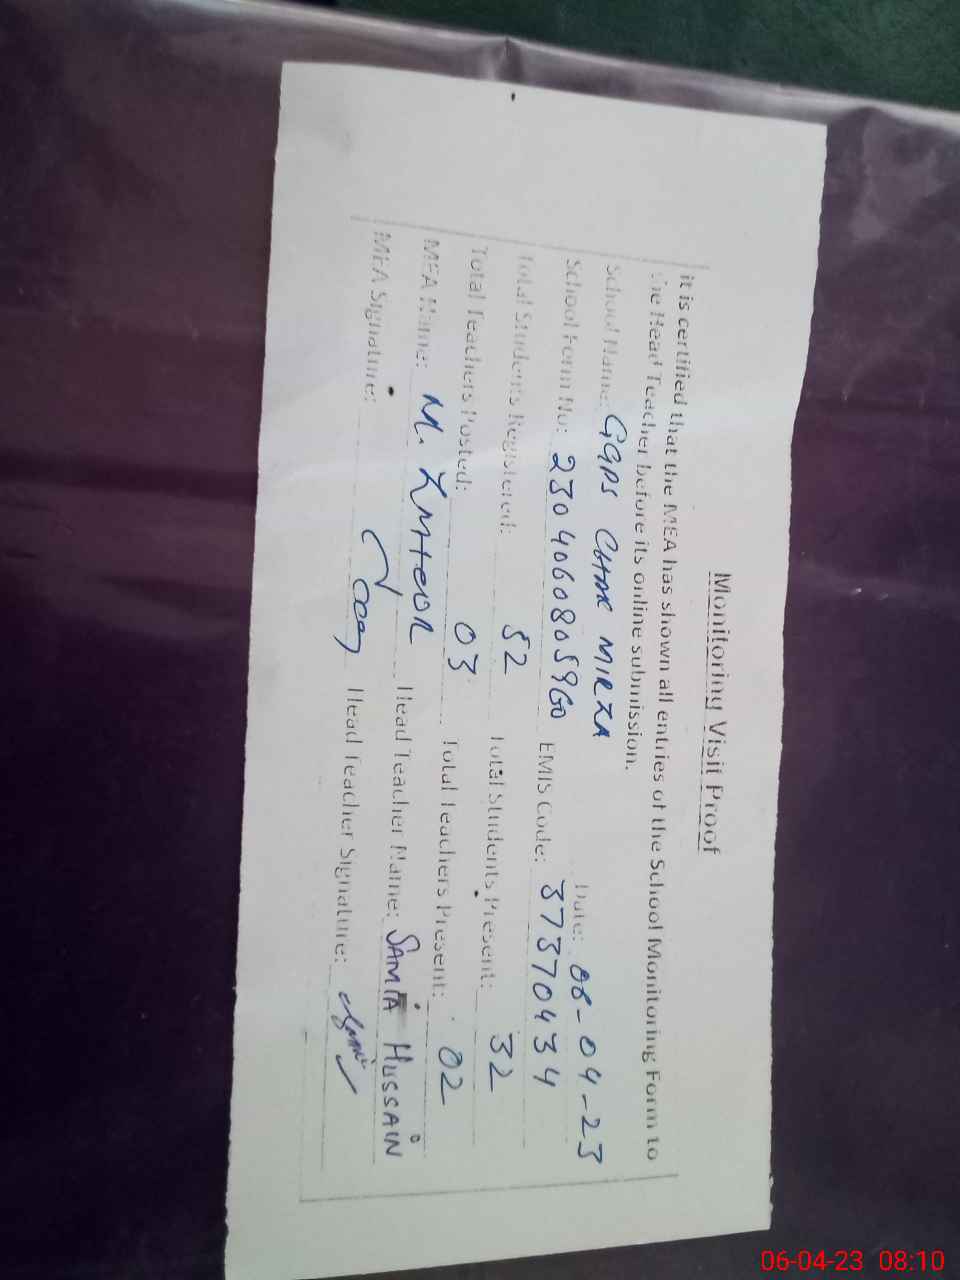 Monitoring Visit Proof
it is certified that the MEA has shown all entries of the School Monitoring Form to
the Head Teacher before its online submission.
School Name: GGPS CHAK MIRZA Date: 06-04-23
School Form No: 230406080590 EMIS Code: 37370434
Total Students Registered: 52 Total Students Present: 32
Total Teachers Posted: 03 Total Teachers Present: 02
MEA Name: M. Head Teacher Name: SAMIA HUSSAIN
MEA Signature: Head Teacher Signature:
06-04-23 08:10